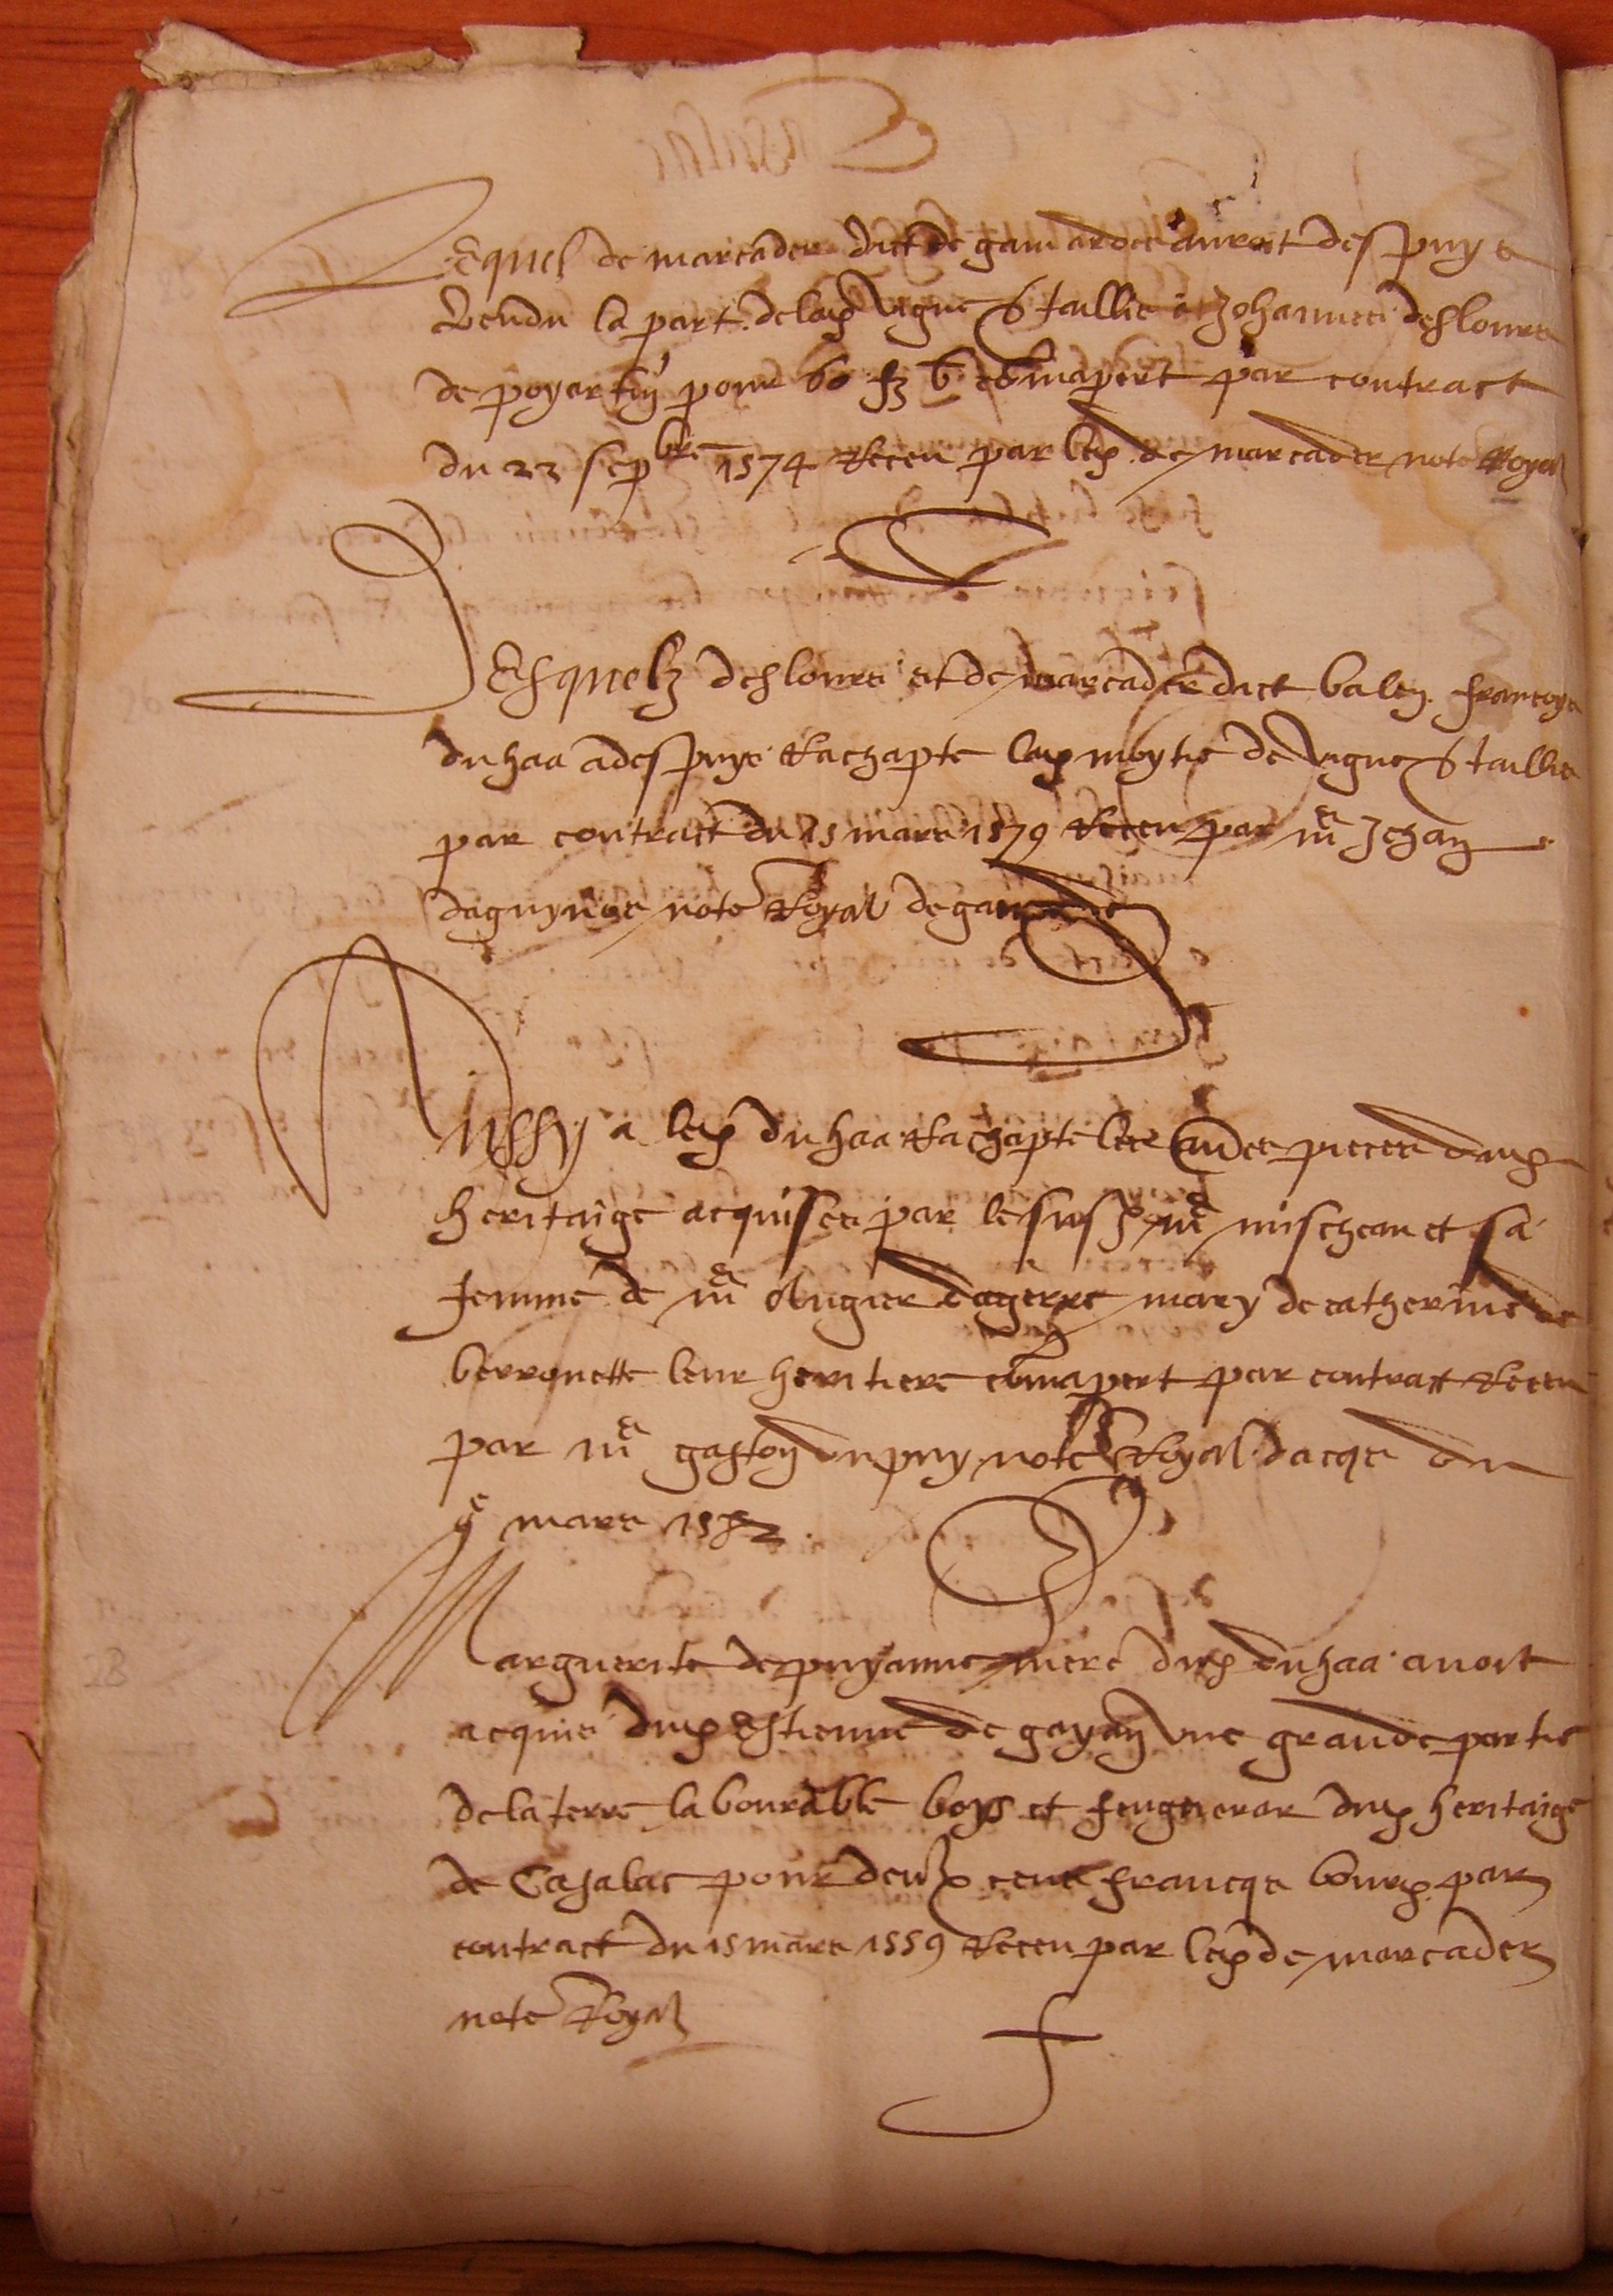 Lequel de marcader dict de gamardes auroit despuys
Vendu la part. de lad vigne & taillis a Johannes deslours
de poyartin pour 60 fz b com apert par contract
du 22 sepbre 1574 Receu par led de marcader note Royal
Desquelz deslours et de marcader dict françoys
du haa a despuys Rachapte lad moytie de vigne & taillis
par contract du 15 mars 1579 Receu par me Jehan
daguynos note Royal de gamardes
Aussy a led du haa Rachapte les pieces dud
heritaige acquises par le susd me mischeau et sa
femme de me ologier dagerre mary de catherine de
berronette leur heritiere com apert par contract Receu
par me gaston dupuy note Royal dacqs du
9e mars 1582.
Marguerite de puyanne mere dud du haa avoit
acquis dud Estienne de gayan une grande partie
de la terre labourable boys et feugnerar dud heritaige
de Casalas pour deux cens francqs bourd. par
contract du 15 mars 1559 Receu par led de marcader
note Royal
28